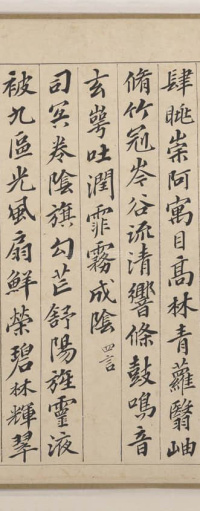 肆眺崇阿寓目高林青蘿翳岫
脩竹冠岑谷流清響條鼓鳴音
玄崿吐潤霏霧成陰 四言
司冥卷陰旗勾芒舒陽旌靈液
被九區光風扇鮮榮碧林輝翠